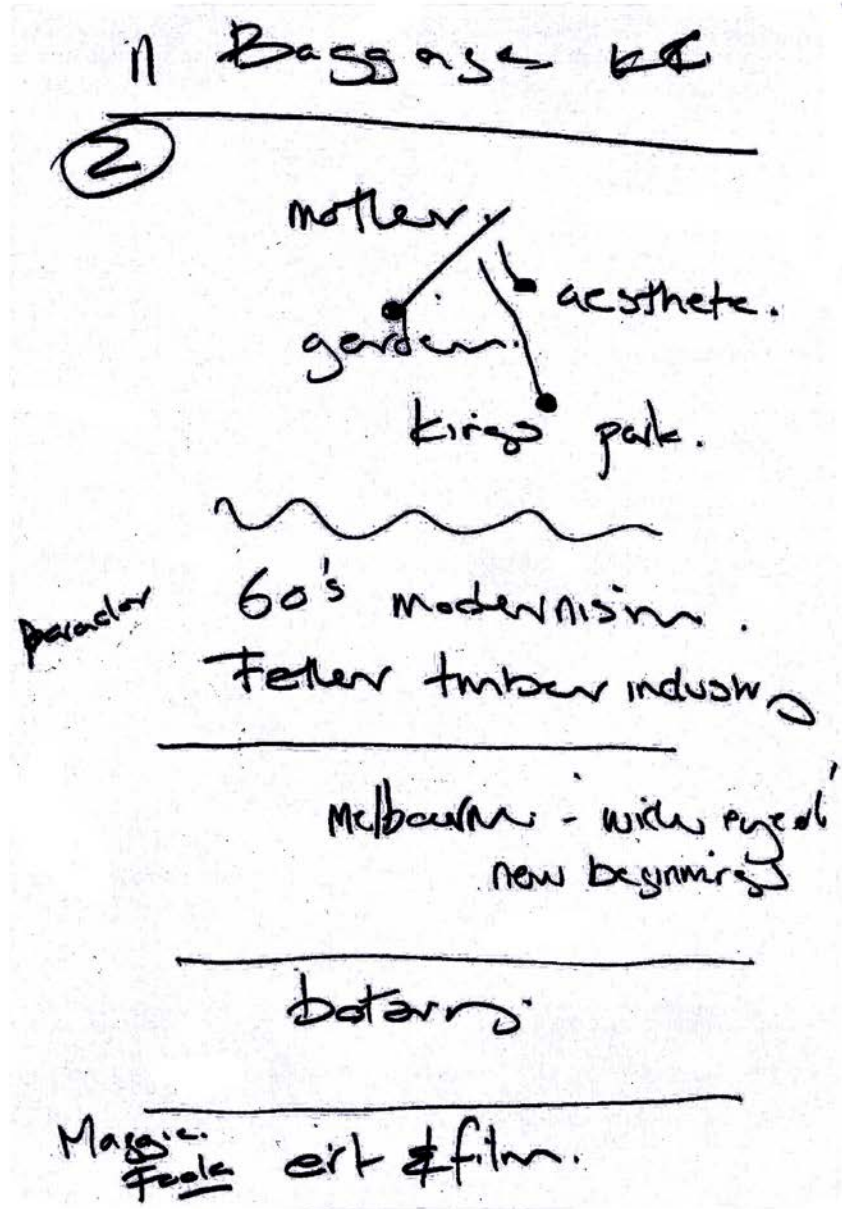 11 Baggage
2
mother.
aesthete.
garden.
kings park.
60's modernism.
timber industry
Melbourne - wide eyed
new beginnings
botany.
Maggie.
art & film.